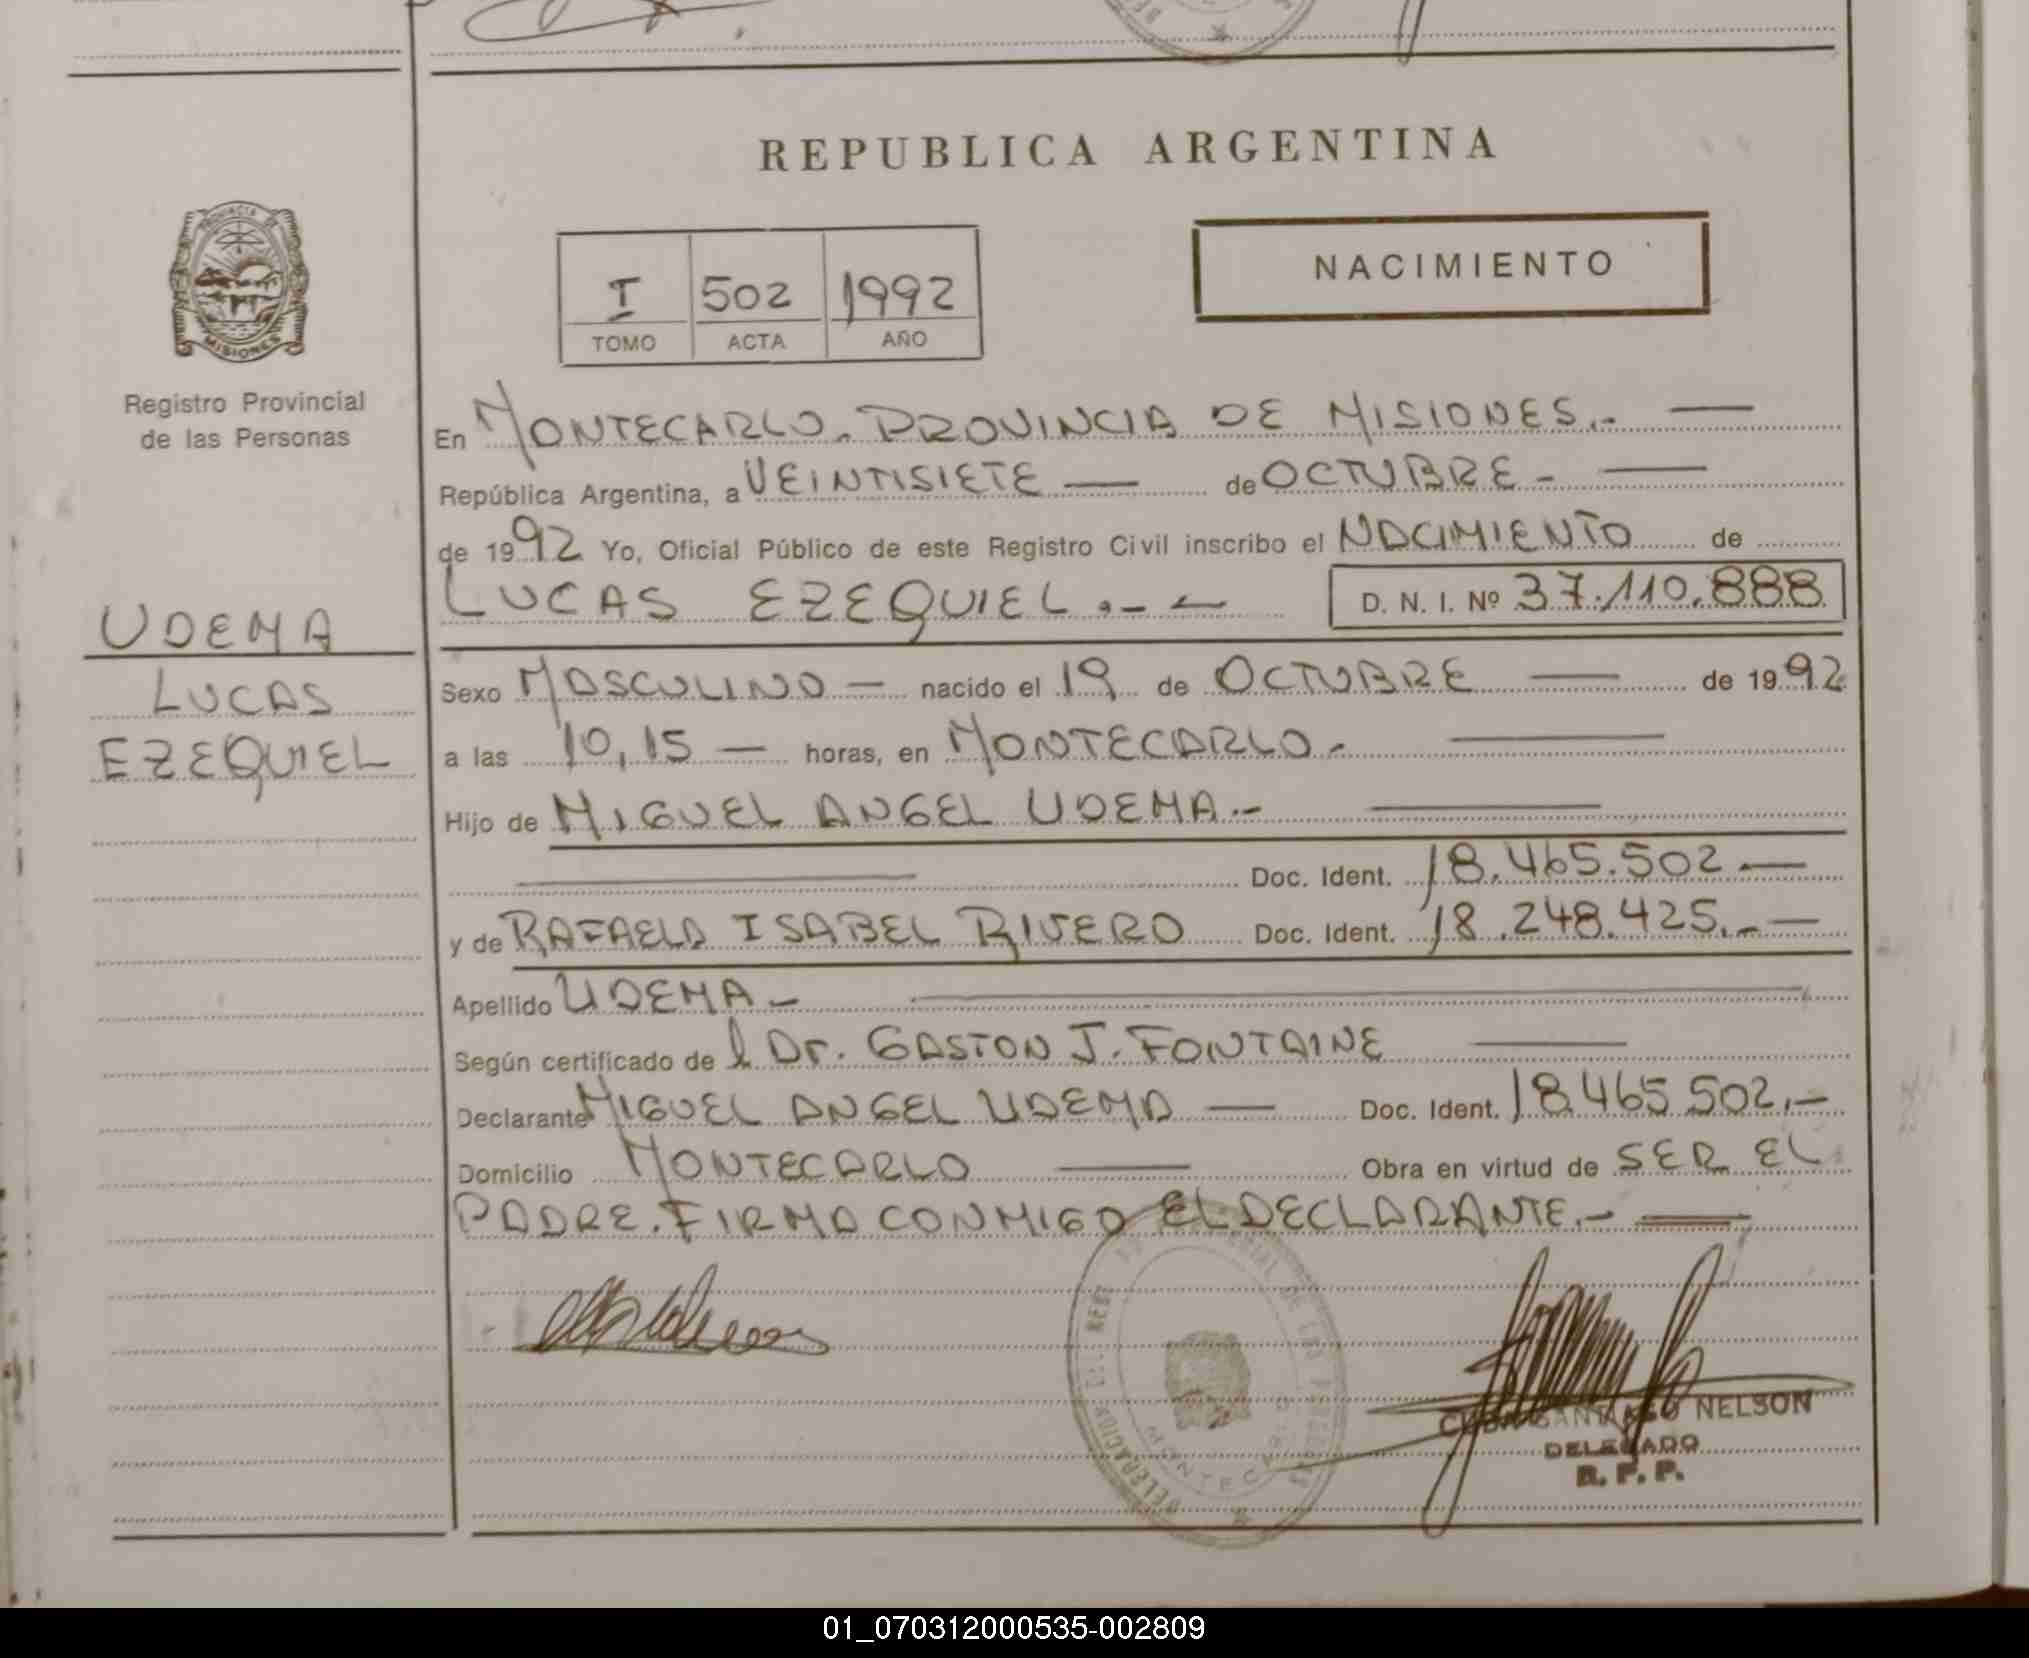 REPUBLICA ARGENTINA
PROVINCIA DE
MISIONES
Registro Provincial
de las Personas
I 502 1992
TOMO ACTA AÑO
NACIMIENTO
En MONTECARLO. PROVINCIA DE MISIONES.- —
República Argentina, a VEINTISIETE — de OCTUBRE - —
de 1992 Yo, Oficial Público de este Registro Civil inscribo el NACIMIENTO de
LUCAS EZEQUIEL.- — D. N. I. Nº 37.110.888
UDEMA
LUCAS
EZEQUIEL
Sexo MASCULINO — nacido el 19 de OCTUBRE — de 1992
a las 10,15 — horas, en MONTECARLO.- —
Hijo de MIGUEL ANGEL UDEMA.- —
— Doc. Ident. 18.465.502.—
y de RAFAELA ISABEL RIVERO Doc. Ident. 18.248.425.- —
Apellido UDEMA - —
Según certificado de l Dr. GASTON J. FONTAINE —
Declarante MIGUEL ANGEL UDEMA — Doc. Ident. 18.465.502.-
Domicilio MONTECARLO — Obra en virtud de SER EL
PADRE. FIRMA CONMIGO EL DECLARANTE.- —
DELEGACION DEL REG
MONTEC
SANTIAGO NELSON
DELEGADO
R. P. P.
01_070312000535-002809